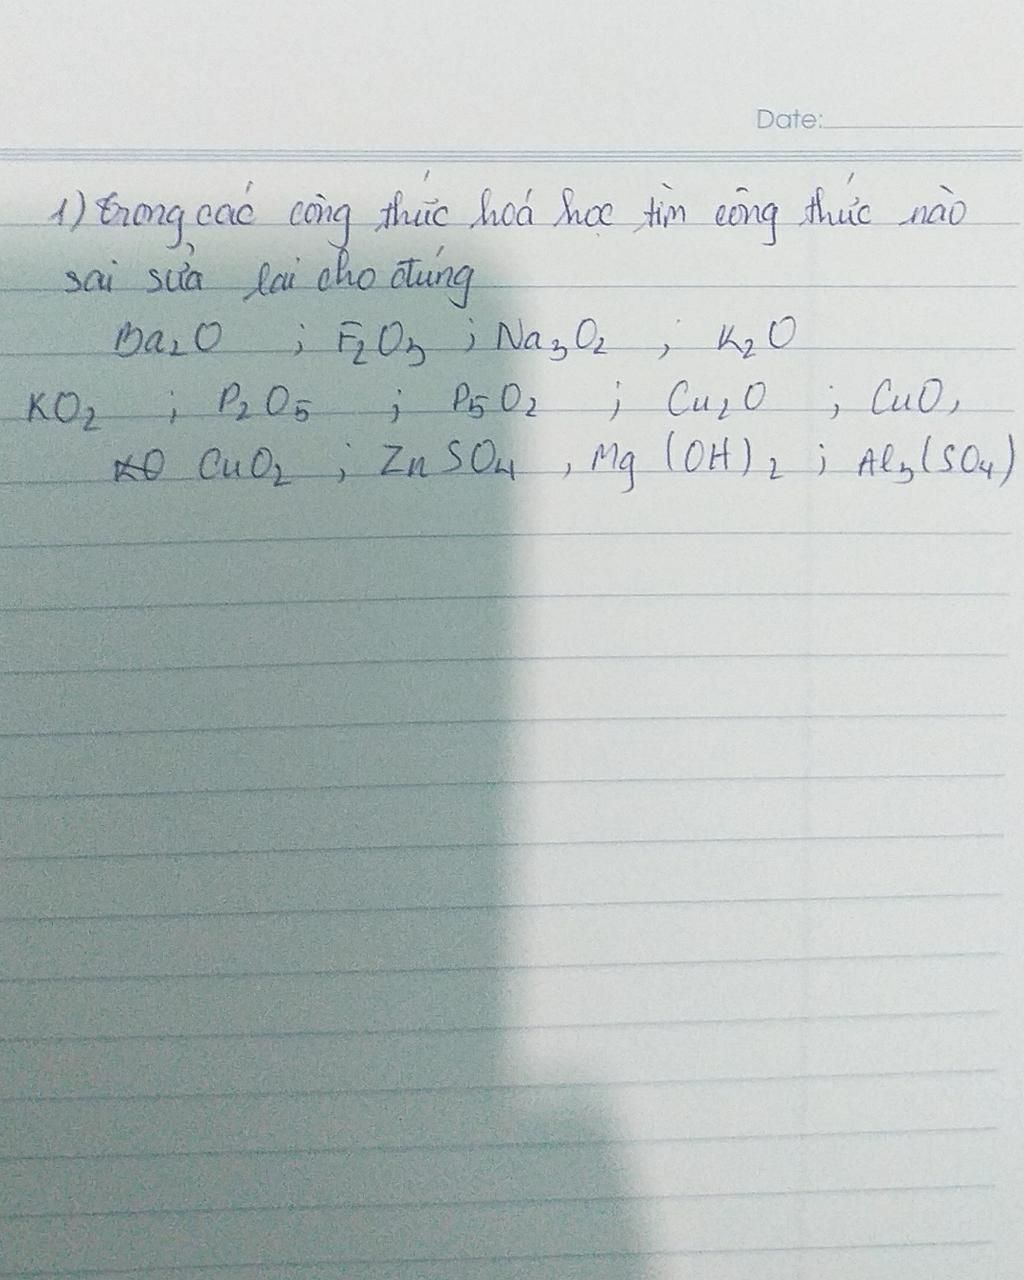 Date:
1) trong các công thức hoá học tìm công thức nào
sai sửa lại cho đúng
Ba₂O ; F₂O₃ ; Na₃O₂ ; K₂O
KO₂ ; P₂O₅ ; P₅O₂ ; Cu₂O ; CuO,
CuO₂ ; ZnSO₄ , Mg(OH)₂ ; Al₃(SO₄)